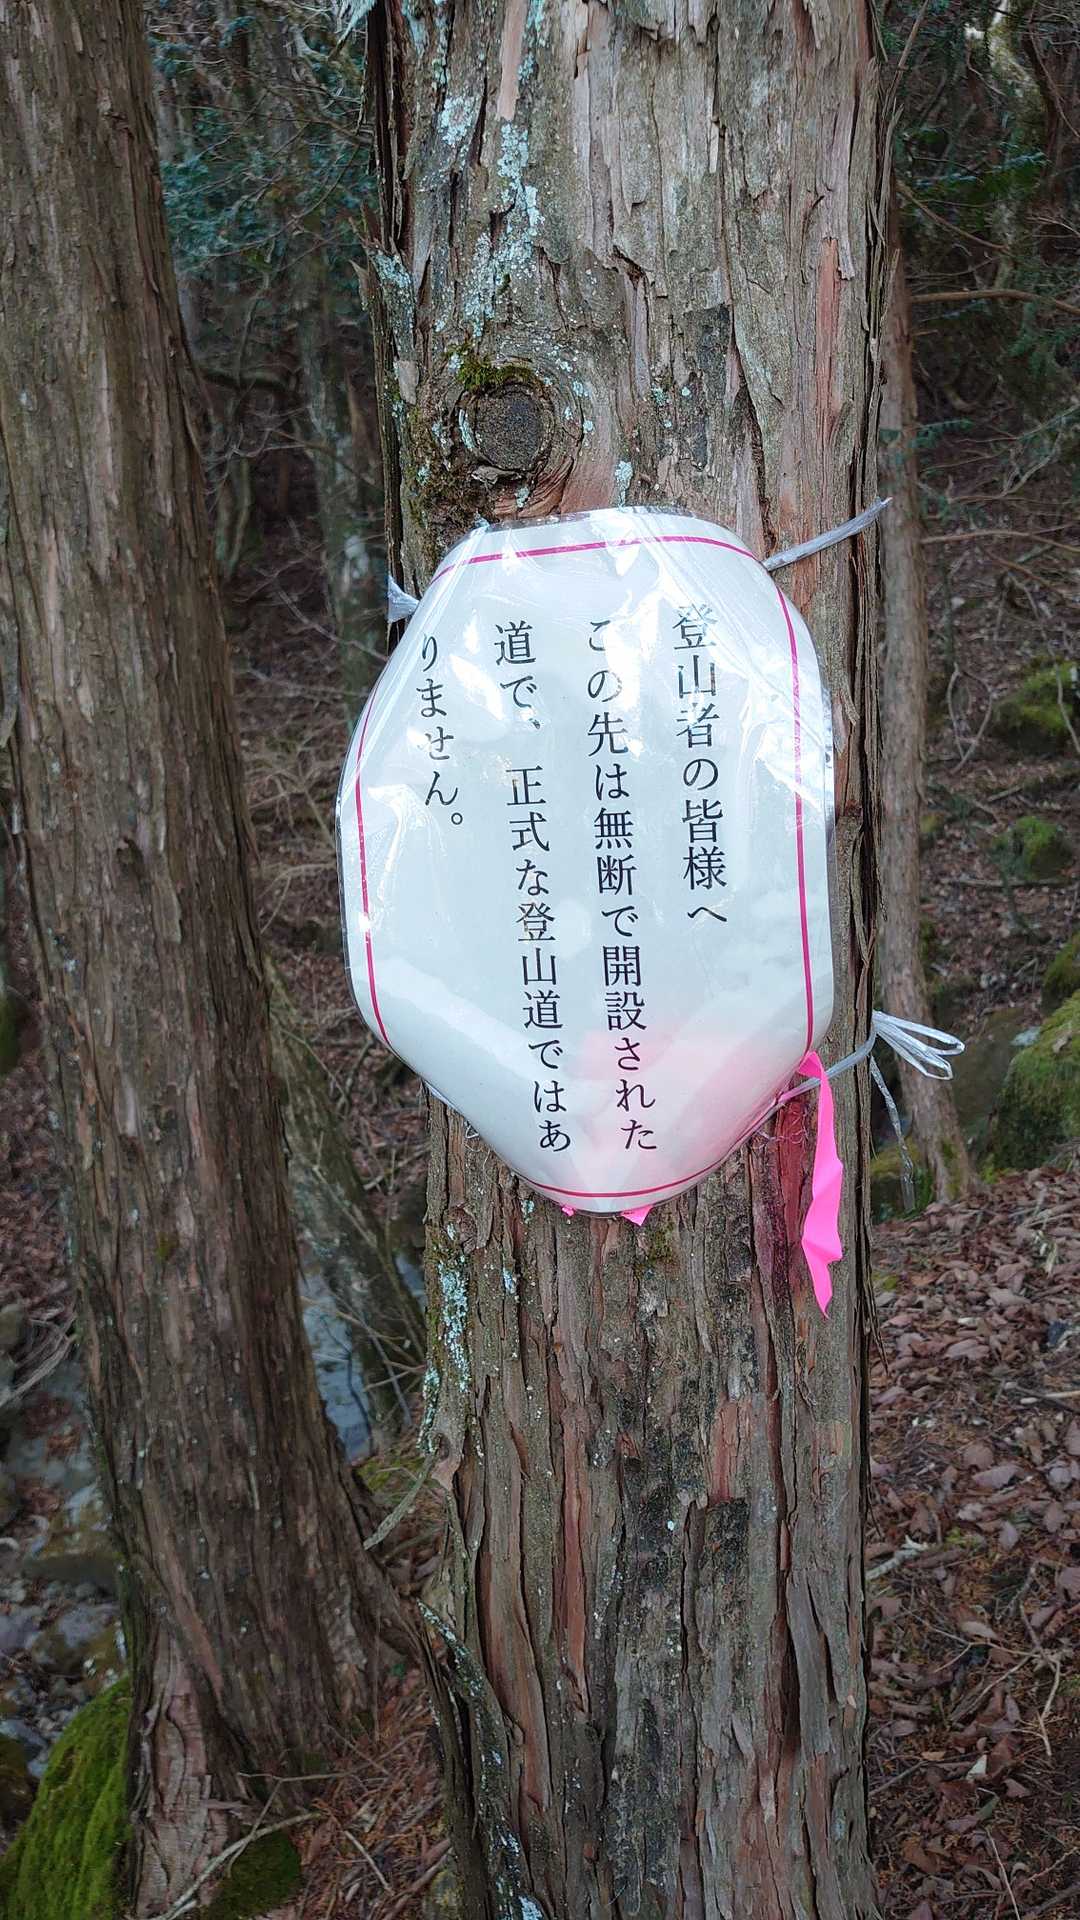 登山者の皆様へ
この先は無断で開設された
道で、正式な登山道ではあ
りません。